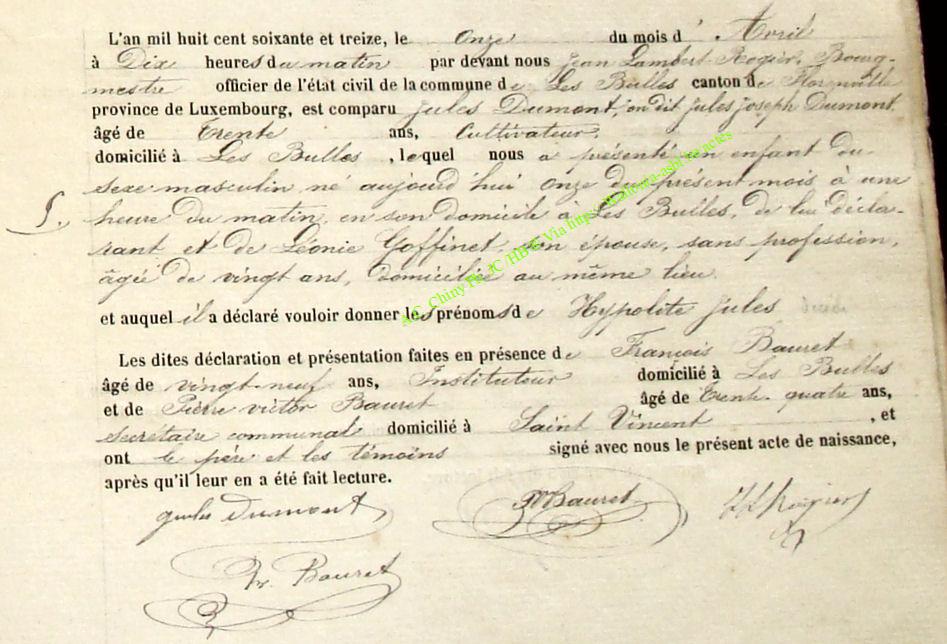 L'an mil huit cent soixante et treize, le Onze du mois d' Avril
à Dix heures du matin par devant nous Jean Lambert Rogier, Bourg-
mestre officier de l'état civil de la commune de Les Bulles canton de Florenville
province de Luxembourg, est comparu Jules Dumont, on dit Jules Joseph Dumont
âgé de Trente ans, Cultivateur,
domicilié à Les Bulles , lequel nous a présenté un enfant du
sexe masculin né aujourd'hui onze du présent mois à une
5. heure du matin, en son domicile à Les Bulles, de lui décla-
rant et de Léonie Goffinet, son épouse, sans profession,
âgée de vingt ans, domiciliée au même lieu
et auquel il a déclaré vouloir donner les prénoms de Hyppolite Jules
Les dites déclaration et présentation faites en présence de François Bauret
âgé de vingt-neuf ans, Instituteur domicilié à Les Bulles
et de Pierre victor Bauret âgé de Trente-quatre ans,
secrétaire communal domicilié à Saint Vincent , et
ont le père et les témoins signé avec nous le présent acte de naissance,
après qu'il leur en a été fait lecture.
jules Dumont Bauret Rogier
Fr. Bauret
Chiny Via http://